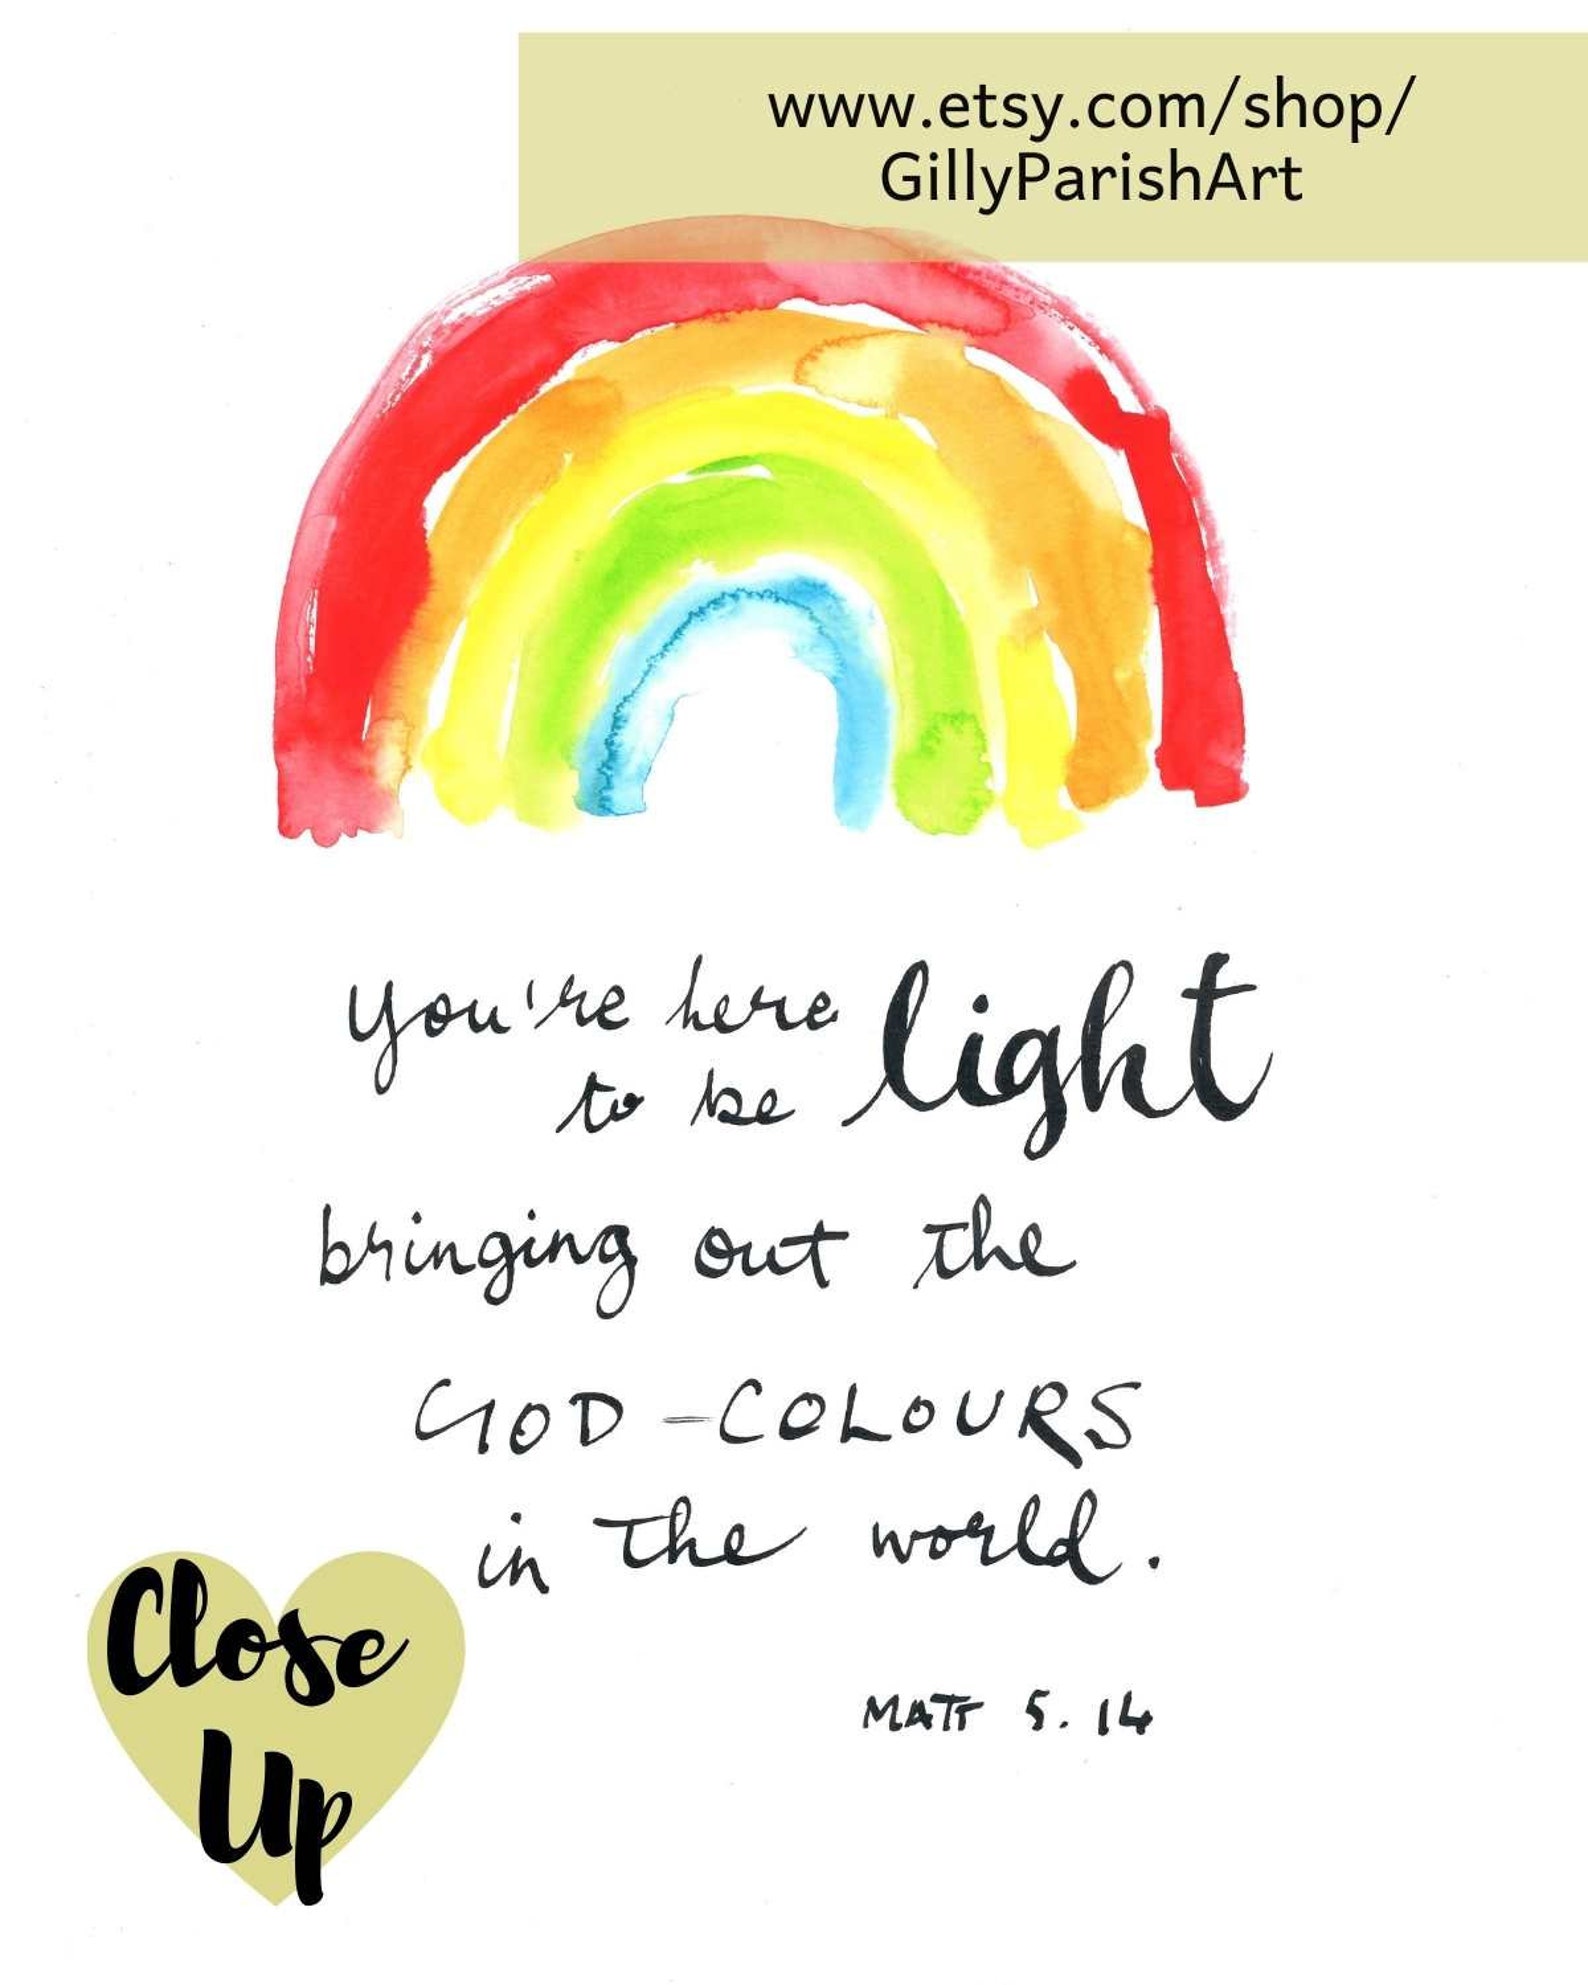 www.etsy.com/shop/
GillyParishArt
you're here
to be light
bringing out the
GOD-COLOURS
in the world.
MATT 5.14
Close
Up